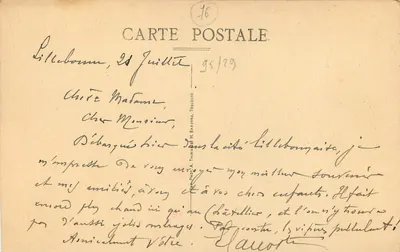 76
CARTE POSTALE
Lillebonne, 21 Juillet
95/29
Chère Madame,
Cher Monsieur,
Débarqués hier dans la cité Lillebonnaise, je
m'empresse de vous envoyer mon meilleur souvenir
et mes amitiés, à vous et à vos chers enfants. Il fait
encore plus chaud ici qu'au Châtellier, et l'on n'y trouve
pas d'aussi jolis ombrages. Par contre, les vipères pullulent!
Amicalement Vôtre.